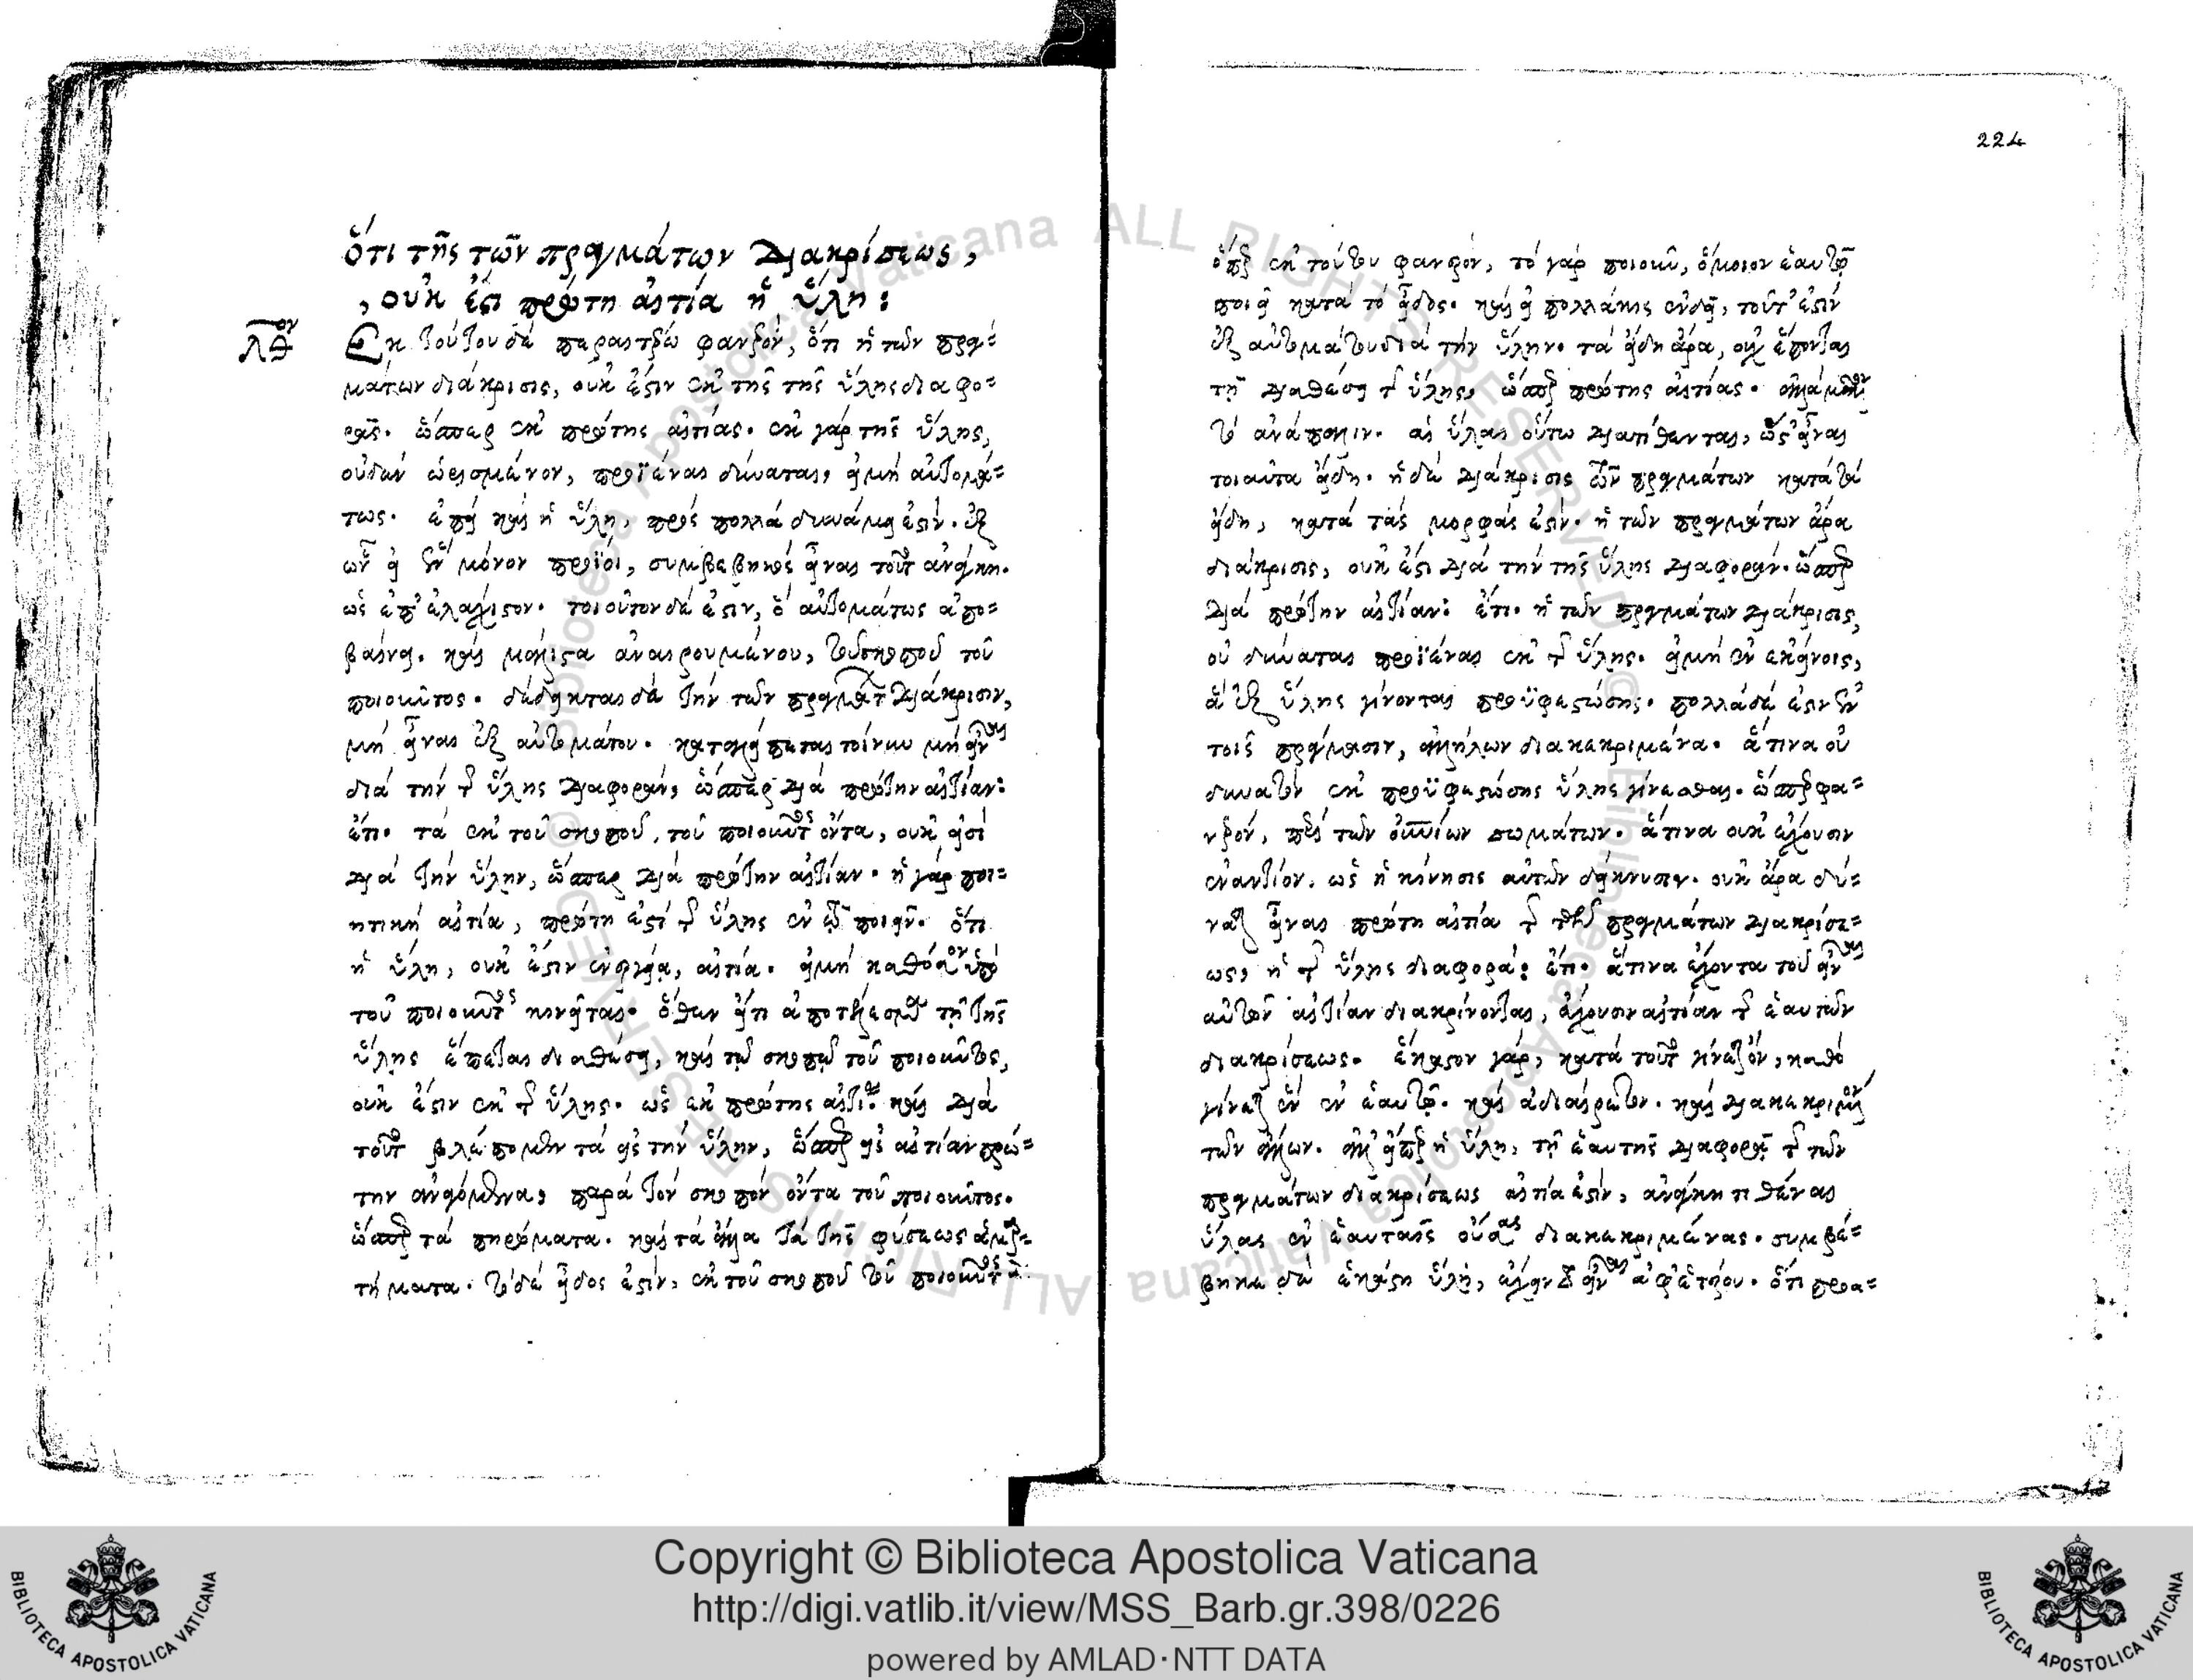 ὅτι τῆς τῶν πραγμάτων διακρίσεως,
οὐκ ἔστι πρώτη αἰτία ἡ ὕλη:
λθον
Ἐκ τούτου δὲ παραστατέω φανερόν, ὅτι ἡ τῶν πραγ-
μάτων διάκρισις, οὐκ ἔστιν ἐκ τῆς τῆς ὕλης διαφο-
ρᾶς. ὥσπερ ἐκ πρώτης αἰτίας. ἐκ γὰρ τῆς ὕλης,
οὐδὲν ὡρισμένον, προϊέναι δύναται, εἰ μὴ αὐτομά-
τως. ἐπεὶ καὶ ἡ ὕλη, πρὸς πολλὰ δυνάμει ἐστίν. ἐξ
ὧν εἰ ἓν μόνον προΐοι, συμβεβηκὸς εἶναι τοῦτο ἀνάγκη.
ὡς ἐπ' ἐλάχιστον. τοιοῦτον δέ ἐστιν, ὃ αὐτομάτως ἀπο-
βαίνει. καὶ μάλιστα ἀναιρουμένου, τοῦ σκοποῦ τοῦ
ποιοῦντος. δέδεικται δὲ τὴν τῶν πραγμάτων διάκρισιν,
μὴ εἶναι ἐξ αὐτομάτου. καταλείπεται τοίνυν μὴ εἶναι
διὰ τὴν τῆς ὕλης διαφοράν, ὥσπερ διὰ πρώτην αἰτίαν:
ἔτι. τὰ ἐκ τοῦ σκοποῦ, τοῦ ποιοῦντος ὄντα, οὐκ εἰσὶ
διὰ τὴν ὕλην, ὥσπερ διὰ πρώτην αἰτίαν. ἡ γὰρ ποι-
ητικὴ αἰτία, πρώτη ἐστὶ τῆς ὕλης ἐν τῷ ποιεῖν. ὅτι
ἡ ὕλη, οὐκ ἔστιν ἐνεργείᾳ, αἰτία. εἰ μὴ καθόσον ὑπὸ
τοῦ ποιοῦντος κινεῖται. ὅθεν εἴ τι ἀποτέλεσμα τῇ τῆς
ὕλης ἕπεται διαθέσει, καὶ τῷ σκοπῷ τοῦ ποιοῦντος,
οὐκ ἔστιν ἐκ τῆς ὕλης. ὡς ἐκ πρώτης αἰτίας καὶ διὰ
τοῦτο βλέπομεν τὰ εἰς τὴν ὕλην, ὥσπερ εἰς αἰτίαν πρώ-
την ἀναγόμενα, παρὰ τὸν σκοπὸν ὄντα τοῦ ποιοῦντος.
ὥσπερ τὰ πηρώματα. καὶ τὰ ἄλλα τὰ τῆς φύσεως ἁμαρ-
τήματα. τὸ δὲ εἶδος ἐστίν, ἐκ τοῦ σκοποῦ τοῦ ποιοῦντος
224
ὅπερ ἐκ τούτου φανερόν, τὸ γὰρ ποιοῦν, ὅμοιον ἑαυτῷ
ποιεῖ κατὰ τὸ εἶδος. καὶ εἰ πολλάκις ἐνδεῖ, τοῦτ' ἐστὶν
ἐξ αὐτομάτου διὰ τὴν ὕλην. τὰ εἴδη ἄρα, οὐχ ἕπονται
τῇ διαθέσει τῆς ὕλης, ὥσπερ πρώτης αἰτίας. ἀλλὰ μᾶλλον
τὸ ἀνάπαλιν. αἱ ὕλαι οὕτω διατίθενται, ὥστ' εἶναι
τοιαῦτα εἴδη. ἡ δὲ διάκρισις τῶν πραγμάτων κατὰ τὰ
εἴδη, κατὰ τὰς μορφάς ἐστιν. ἡ τῶν πραγμάτων ἄρα
διάκρισις, οὐκ ἔστι διὰ τὴν τῆς ὕλης διαφοράν. ὥσπερ
διὰ πρώτην αἰτίαν: ἔτι. ἡ τῶν πραγμάτων διάκρισις,
οὐ δύναται προϊέναι ἐκ τῆς ὕλης. εἰ μὴ ἐν ἐκείνοις,
ἃ ἐξ ὕλης γίνονται προϋφεστώσης. πολλὰ δέ ἐστιν ἐν
τοῖς πράγμασιν, ἀλλήλων διακεκριμένα. ἅτινα οὐ
δυνατὸν ἐκ προϋφεστώσης ὕλης γίνεσθαι. ὥσπερ φα-
νερόν, περὶ τῶν οὐρανίων σωμάτων. ἅτινα οὐκ ἔχουσιν
ἐναντίον. ὡς ἡ κίνησις αὐτῶν δείκνυσιν. οὐκ ἄρα δύ-
ναται εἶναι πρώτη αἰτία τῆς τῶν πραγμάτων διακρίσε-
ως, ἡ τῆς ὕλης διαφορά: ἔτι. ἅτινα ἔχοντα τοῦ εἶναι
αὐτῶν αἰτίαν διακρίνονται, ἔχουσιν αἰτίαν τῆς ἑαυτῶν
διακρίσεως. ἕκαστον γάρ, κατὰ τοῦτο γίνεται ὄν, καθὸ
γίνεται ἓν ἐν ἑαυτῷ. καὶ ἀδιαίρετον. καὶ διακεκριμένον
τῶν ἄλλων. ἀλλ' εἴπερ ἡ ὕλη, τῇ ἑαυτῆς διαφορᾷ τῆς τῶν
πραγμάτων διακρίσεως αἰτία ἐστίν, ἀνάγκη τιθέναι
ὕλας ἐν ἑαυταῖς οὔσας διακεκριμένας. συμβέ-
βηκε δὲ ἑκάστῃ ὕλῃ, ἔχειν τὸ εἶναι ἀφ' ἑτέρου. ὅτι προα-